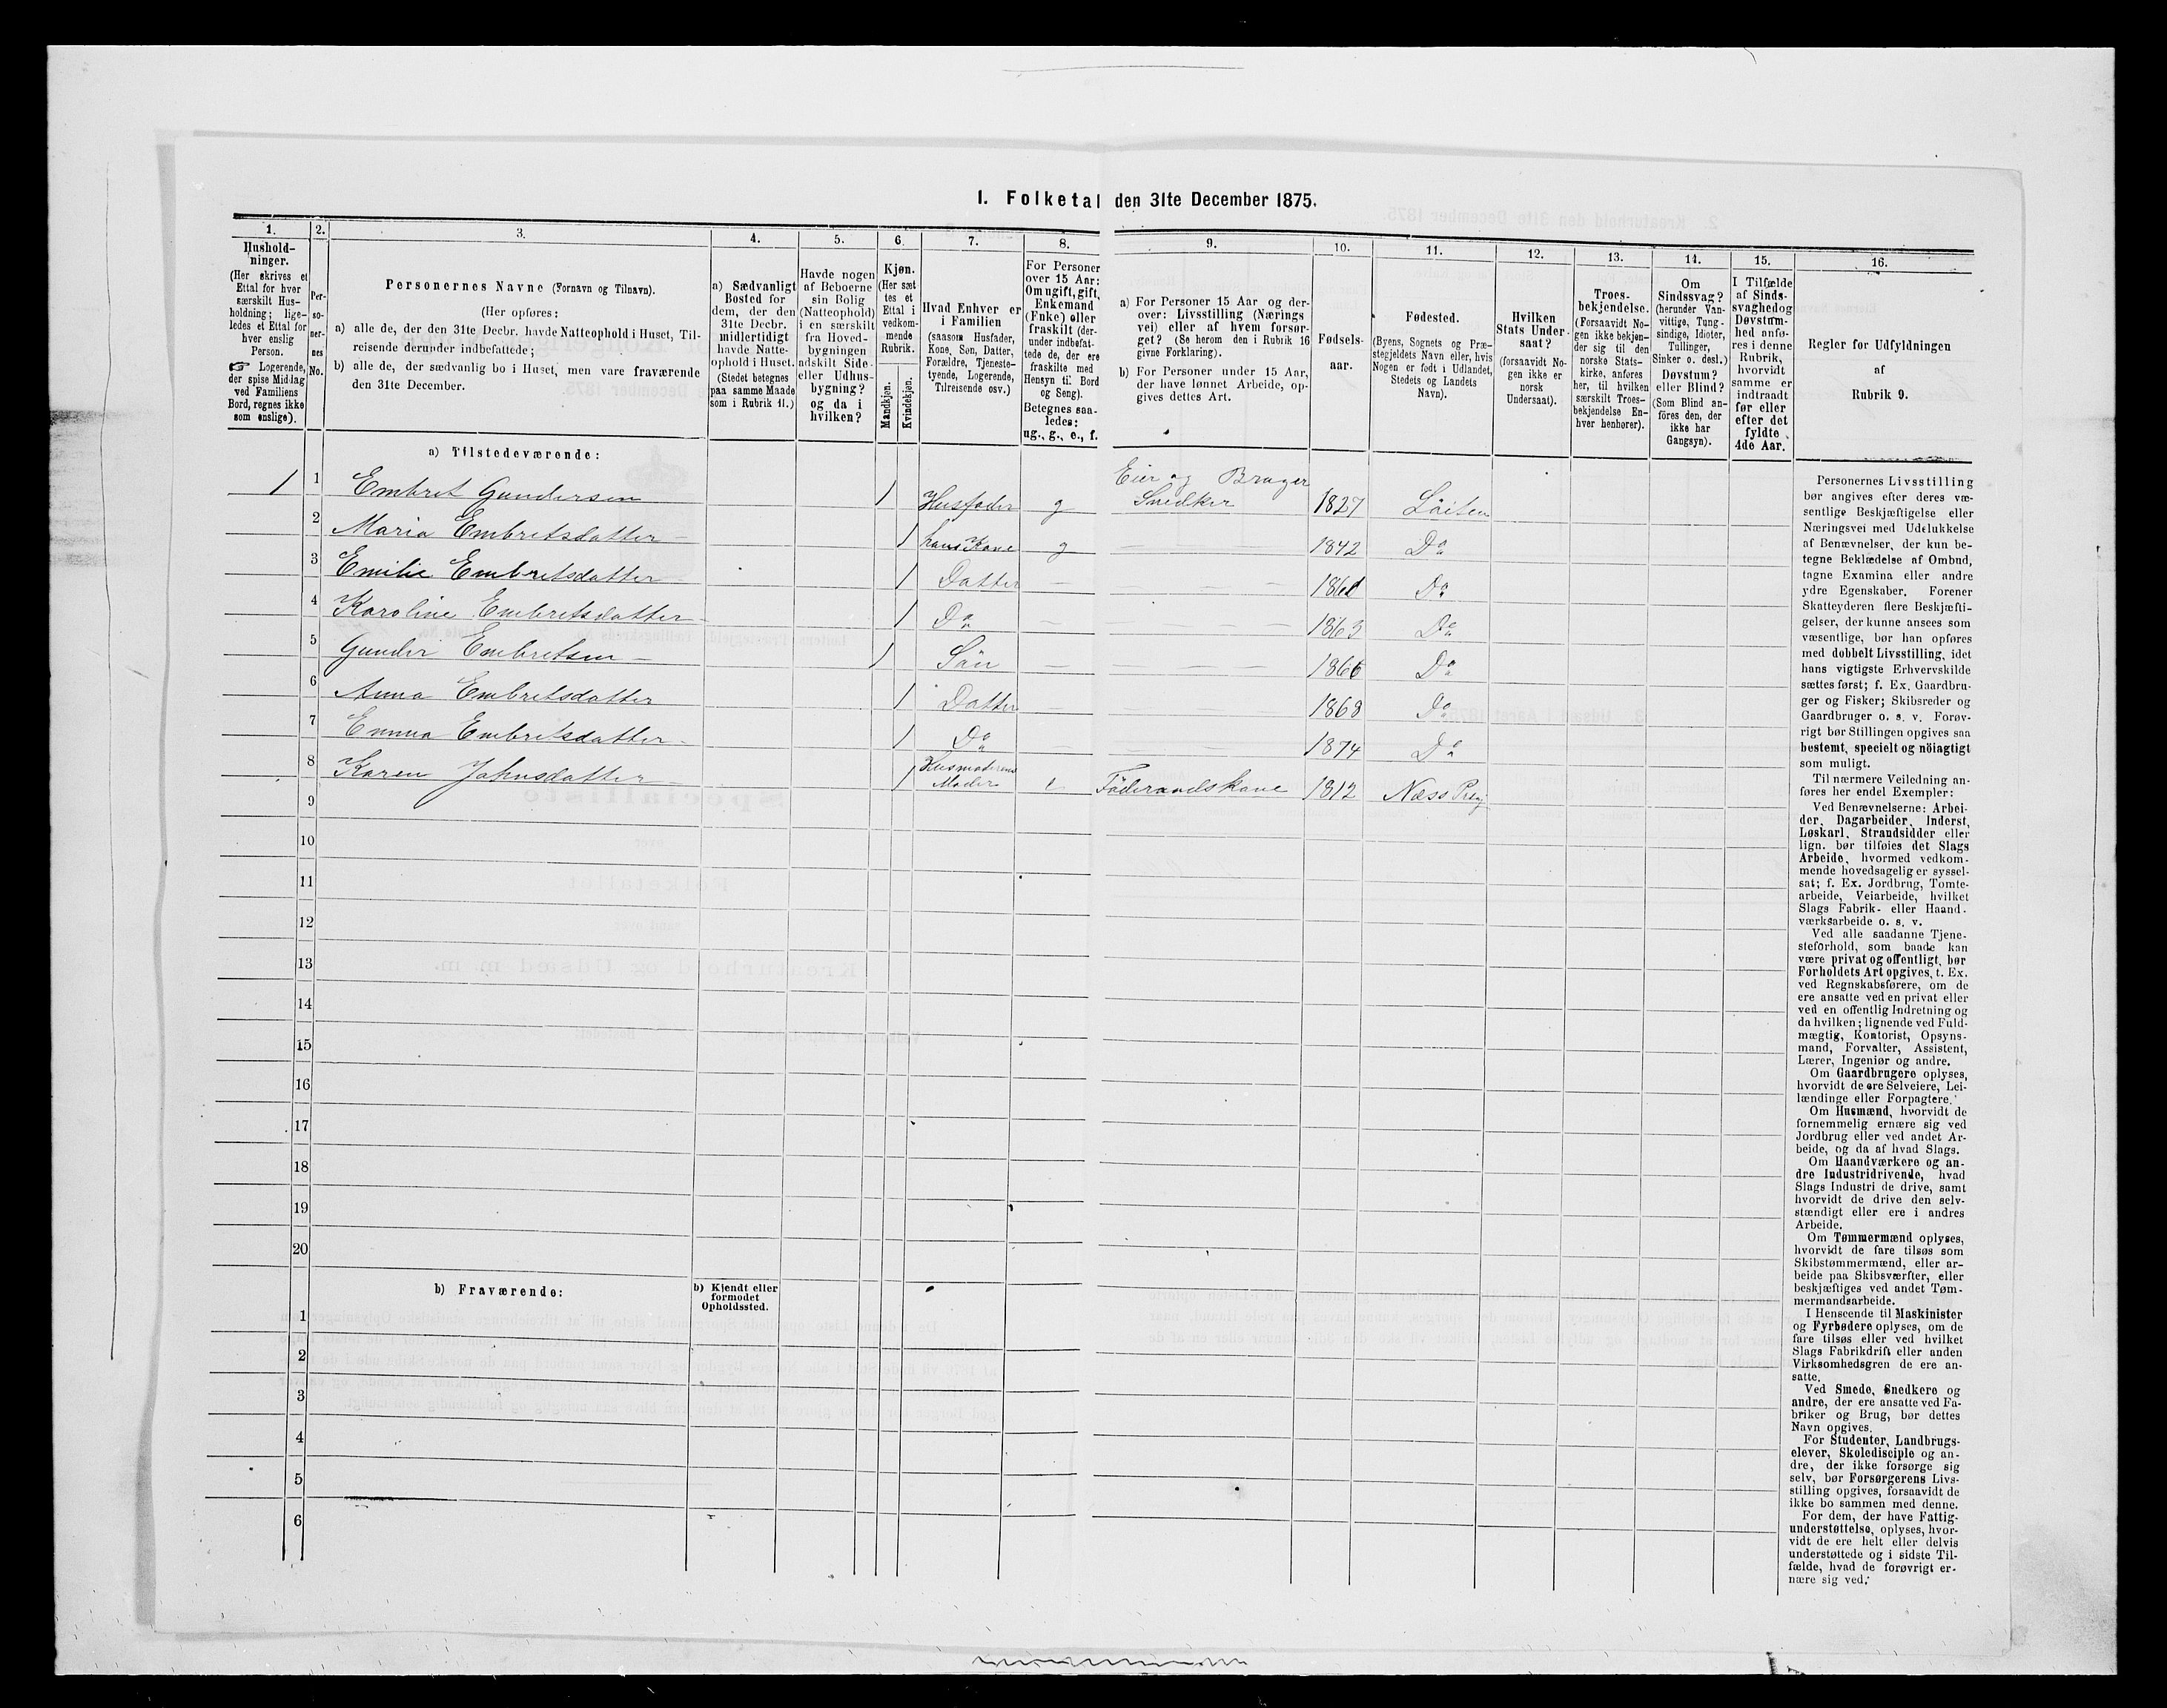 1. Folketal den 31te December 1875.
1.
Hushold-
ninger.
(Her skrives et
Ettal for hver
særskilt Hus-
holdning; lige-
ledes et Ettal for
hver enslig
Person.
☞ Logerende,
der spise Middag
ved Familiens
Bord, regnes ikke
som enslige).
2.
Per-
so-
ner-
nes
No.
3.
Personernes Navne (Fornavn og Tilnavn).
(Her opføres:
a) alle de, der den 31te Decbr. havde Natteophold i Huset, Til-
reisende derunder indbefattede;
b) alle de, der sædvanlig bo i Huset, men vare fraværende
den 31te December.
4.
a) Sædvanligt
Bosted for
dem, der den
31te Decbr.
midlertidigt
havde Natte-
ophold i Huset.
(Stedet betegnes
paa samme Maade
som i Rubrik 11.)
5.
Havde nogen
af Beboerne
sin Bolig
(Natteophold)
i en særskilt
fra Hoved-
bygningen
adskilt Side-
eller Udhus-
bygning?
og da i
hvilken?
6.
Kjøn.
(Her sæt
tes et
Ettal i
vedkom-
mende
Rubrik.
Mandkjøn.
Kvindekjøn.
7.
Hvad Enhver er
i Familien
(saasom Husfader,
Kone, Søn, Datter,
Forældre, Tjeneste-
tyende, Logerende,
Tilreisende osv.)
8.
For Personer
over 15 Aar:
Om ugift, gift,
Enkemand
(Enke) eller
fraskilt (der-
under indbefat-
tede de, der ere
fraskilte med
Hensyn til Bord
og Seng).
Betegnes saa-
ledes:
ug., g., e., f.
9.
a) For Personer 15 Aar og der-
over: Livsstilling (Nærings
vei) eller af hvem forsør-
get? (Se herom den i Rubrik 16
givne Forklaring).
b) For Personer under 15 Aar,
der have lønnet Arbeide, op-
gives dettes Art.
10.
Fødsels-
aar.
11.
Fødested.
(Byens, Sognets og Præ-
stegjeldets Navn eller, hvis
Nogen er født i Udlandet,
Stedets og Landets
Navn).
12.
Hvilken
Stats Under-
saat?
(forsaavidt No-
gen ikke er
norsk
Undersaat).
13.
Troes-
bekjendelse.
(Forsaavidt No-
gen ikke bekjen-
der sig til den
norske Stats-
kirke, anføres
her, til hvilken
særskilt Troes-
bekjendelse En-
hver henhører).
14.
Om
Sindssvag?
(herunder Van-
vittige, Tung-
sindige, Idioter,
Tullinger,
Sinker o. desl.)
Døvstum?
eller Blind?
(Som Blind an-
føres den, der
ikke har
Gangsyn).
15.
I Tilfælde
af Sinds-
svaghedog
Døvstum-
hed anfø-
res i denne
Rubrik,
hvorvidt
samme er
indtraadt
før eller
efter det
fyldte
4de Aar.
16.
Regler for Udfyldningen
af
Rubrik 9.
a) Tilstedeværende:
1 1 Embret Gundersen 1 Husfader g Eier og Bruger
Snedker 1827 Löiten
2 Maria Embretsdatter 1 hans Kone g 1842 Do
3 Emilie Embretsdatter 1 Datter 1861 Do
4 Karoline Embretsdatter 1 Do 1863 Do
5 Gunder Embretsen 1 Sön 1866 Do
6 Anna Embretsdatter 1 Datter 1868 Do
7 Emma Embretsdatter 1 Do 1874 Do
8 Karen Johnsdatter 1 Husmoderens
Moder e Föderaadskone 1812 Næss Præj
9
10
11
12
13
14
15
16
17
18
19
20
b) Fraværende:
b) Kjendt eller
formodet
Opholdssted.
1
2
3
4
5
6
Personernes Livsstilling
bør angives efter deres væ-
sentlige Beskjæftigelse eller
Næringsvei med Udelukkelse
af Benævnelser, der kun be-
tegne Beklædelse af Ombud,
tagne Examina eller andre
ydre Egenskaber. Forener
Skatteyderen flere Beskjæfti-
gelser, der kunne ansees som
væsentlige, bør han opføres
med dobbelt Livsstilling, idet
hans vigtigste Erhvervskilde
sættes først; f. Ex. Gaardbru-
ger og Fisker; Skibsreder og
Gaardbruger o. s. v. Forøv-
rigt bør Stillingen opgives saa
bestemt, specielt og nöiagtigt
som muligt.
Til nærmere Veiledning an-
føres her endel Exempler:
Ved Benævnelserne: Arbei-
der, Dagarbeider, Inderst,
Løskarl, Strandsidder eller
lign. bør tilføies det Slags
Arbeide, hvormed vedkom-
mende hovedsagelig er syssel-
sat; f. Ex. Jordbrug, Tomte-
arbeide, Veiarbeide, hvilket
Slags Fabrik- eller Haand-
værksarbeide o. s. v.
Ved alle saadanne Tjene-
steforhold, som baade kan
være privat og offentligt, bør
Forholdets Art opgives, t. Ex.
ved Regnskabsførere, om de
ere ansatte ved en privat eller
ved en offentlig Indretning og
da hvilken; lignende ved Fuld-
mægtig, Kontorist, Opsyns-
mand, Forvalter, Assistent,
Lærer, Ingeniør og andre.
Om Gaardbrugere oplyses,
hvorvidt de ere Selveiere, Lei-
lændinge eller Forpagtere.
Om Husmænd, hvorvidt de
fornemmelig ernære sig ved
Jordbrug eller ved andet Ar-
beide, og da af hvad Slags.
Om Haandværkere og an-
dre Industridrivende, hvad
Slags Industri de drive, samt
hvorvidt de drive den selv-
stændigt eller ere i andres
Arbeide.
Om Tømmermænd oplyses,
hvorvidt de fare tilsøs som
Skibstømmermænd, eller ar-
beide paa Skibsværfter, eller
beskjæftiges ved andet Tøm-
mermandsarbeide.
I Henseende til Maskinister
og Fyrbødere oplyses, om de
fare tilsøs eller ved hvilket
Slags Fabrikdrift eller anden
Virksomhedsgren de ere an-
satte.
Ved Smede, Snedkere og
andre, der ere ansatte ved Fa-
briker og Brug, bør dettes
Navn opgives.
For Studenter, Landbrugs-
elever, Skoledisciple og an-
dre, der ikke forsørge sig
selv, bør Forsørgerens Livs-
stilling opgives, forsaavidt de
ikke bo sammen med denne.
For dem, der have Fattig-
understøttelse, oplyses, hvor-
vidt de ere helt eller delvis
understøttede og i sidste Til-
fælde, hvad de forøvrigt er-
nære sig ved.